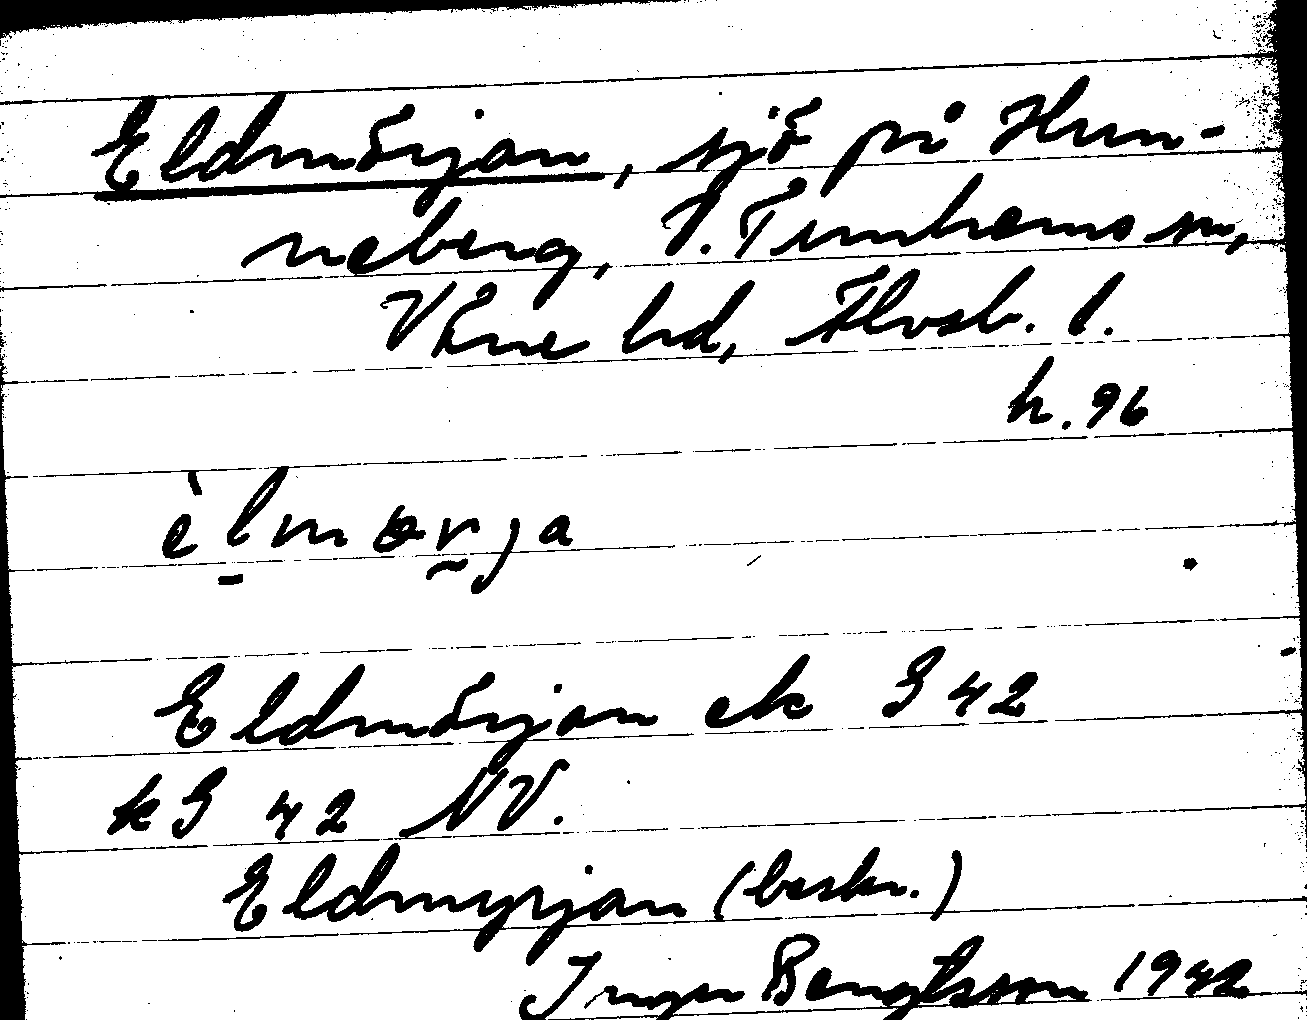 Eldmörjan, sjö på Hun-
neberg, V. Tunhems sn,
Väne hd, Älvsb. l.
h. 96
èl̠mɵr̰ja
Eldmörjan ek G 42
kG 42 NV.
Eldmyrjan (beskr.)
Inger Bengtsson 1942